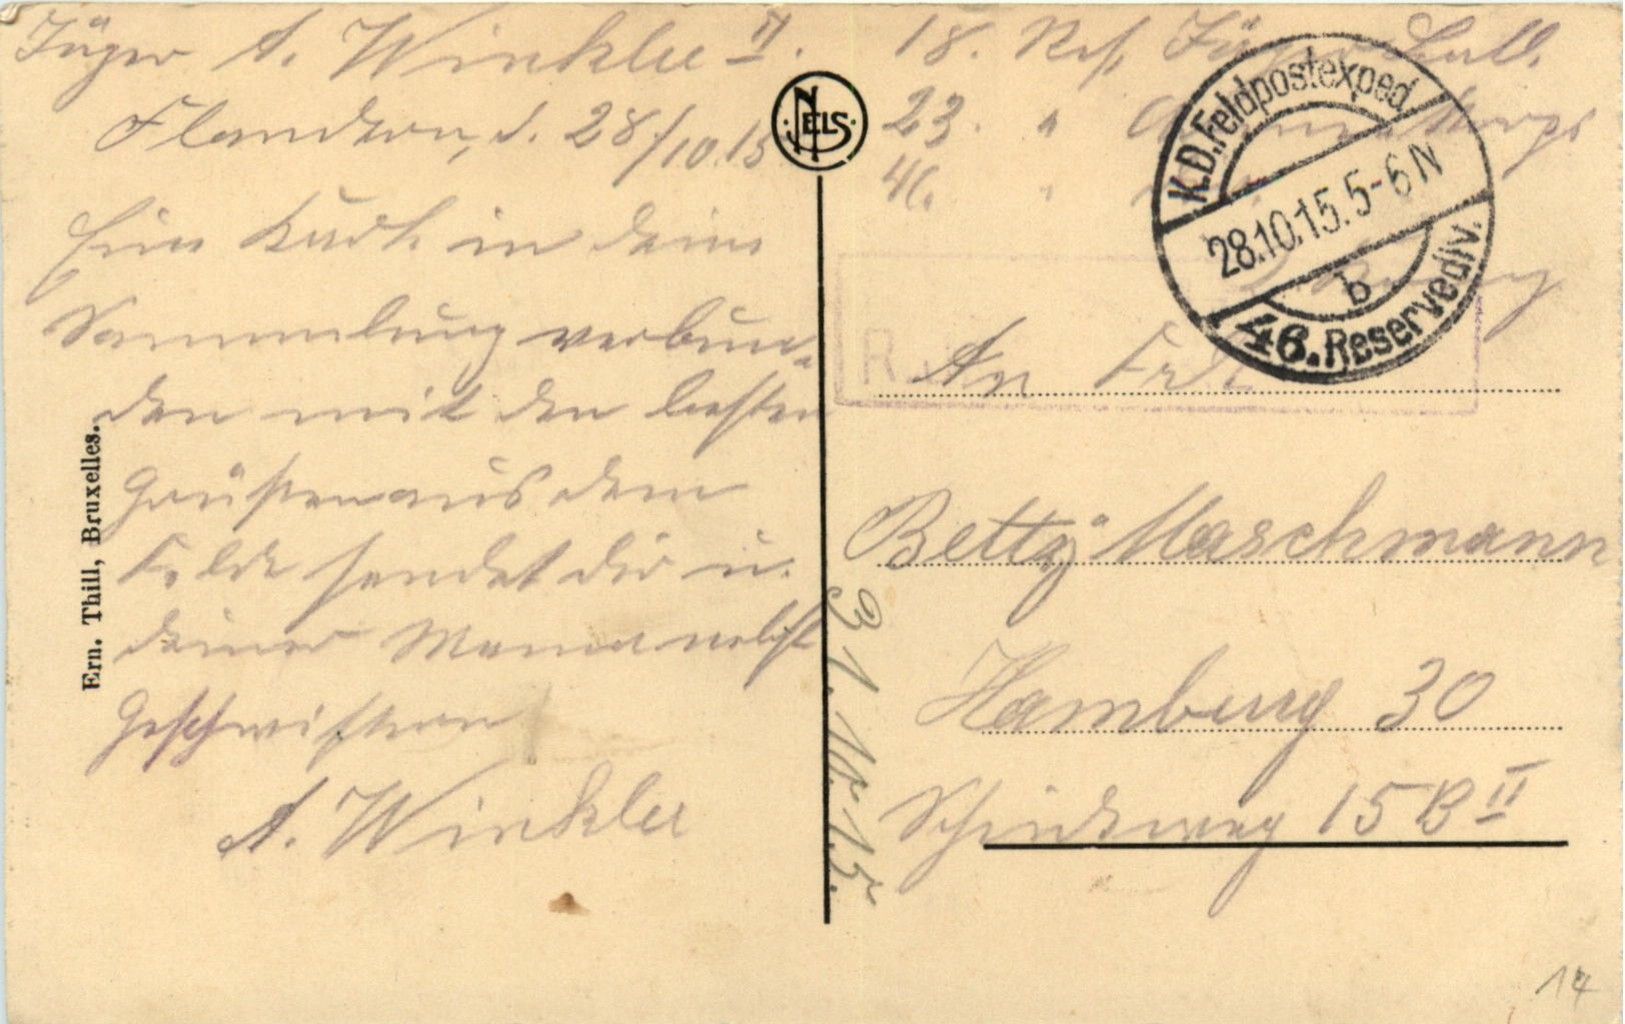 Jäger A. Winkler II.
Flandern, d. 28/10.15
Eine Karte in deine
Sammlung verbun-
den mit den besten
Grüßen aus dem
Felde sendet dir u.
deiner Mama nebst
Geschwistern
A. Winkler
Ern. Thill, Bruxelles.
NELS
18. Res. Jäger Batl.
23. "
46. "
K.D. Feldpostexped.
28.10.15.5-6N
b
46. Reservediv.
R.
An Frl.
Betty Maschmann
Hamburg 30
15 B II
31.10.15.
14